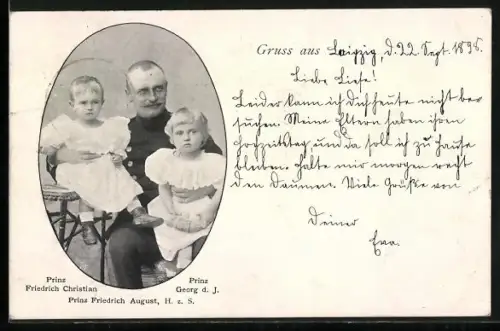 Gruss aus Leipzig, d. 22. Sept. 1898.
Liebe Liese!
Leider kann ich dich heute nicht be-
suchen. Meine Eltern haben ihren
Hochzeitstag, und da soll ich zu Hause
bleiben. Halte mir morgen recht
den Daumen. Viele Grüße von
Deiner
Eva.
Prinz
Friedrich Christian
Prinz
Georg d. J.
Prinz Friedrich August, H. z. S.